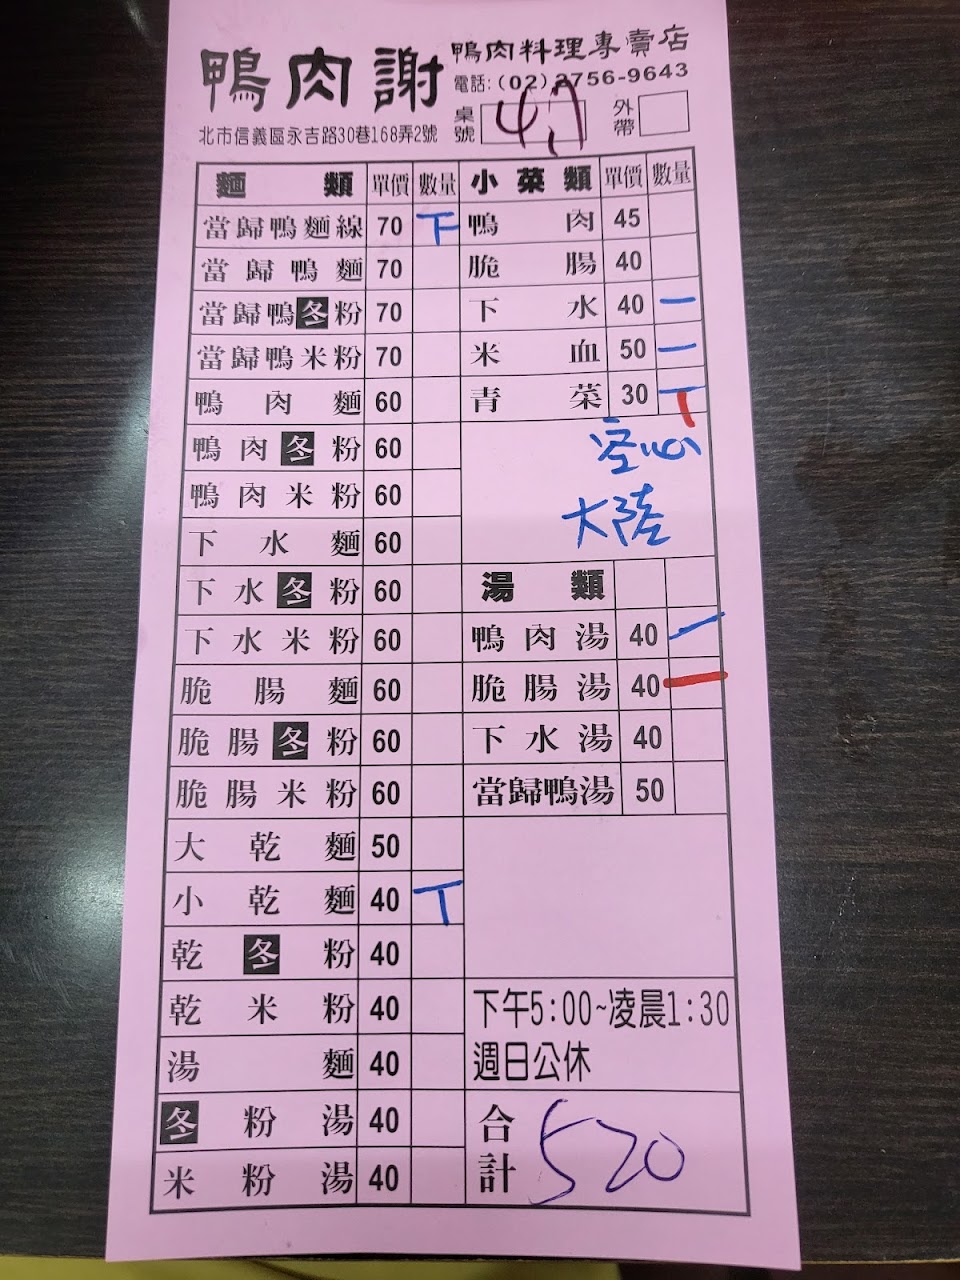 鴨肉謝 鴨肉料理專賣店
電話:(02)2756-9643
北市信義區永吉路30巷168弄2號 桌號 外帶
麵類 單價 數量
當歸鴨麵線 70 下
當歸鴨麵 70
當歸鴨冬粉 70
當歸鴨米粉 70
鴨肉麵 60
鴨肉冬粉 60
鴨肉米粉 60
下水麵 60
下水冬粉 60
下水米粉 60
脆腸麵 60
脆腸冬粉 60
脆腸米粉 60
大乾麵 50
小乾麵 40 丅
乾冬粉 40
乾米粉 40
湯麵 40
冬粉湯 40
米粉湯 40
小菜類 單價 數量
鴨肉 45
脆腸 40
下水 40 一
米血 50 一
青菜 30 丅
空心
大陸
湯類
鴨肉湯 40 一
脆腸湯 40 一
下水湯 40
當歸鴨湯 50
下午5:00~凌晨1:30
週日公休
合計 520